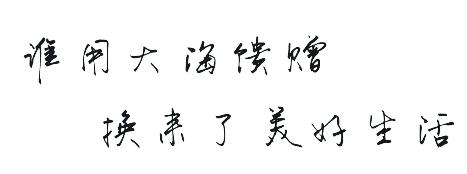 谁用大海馈赠
换来了美好生活